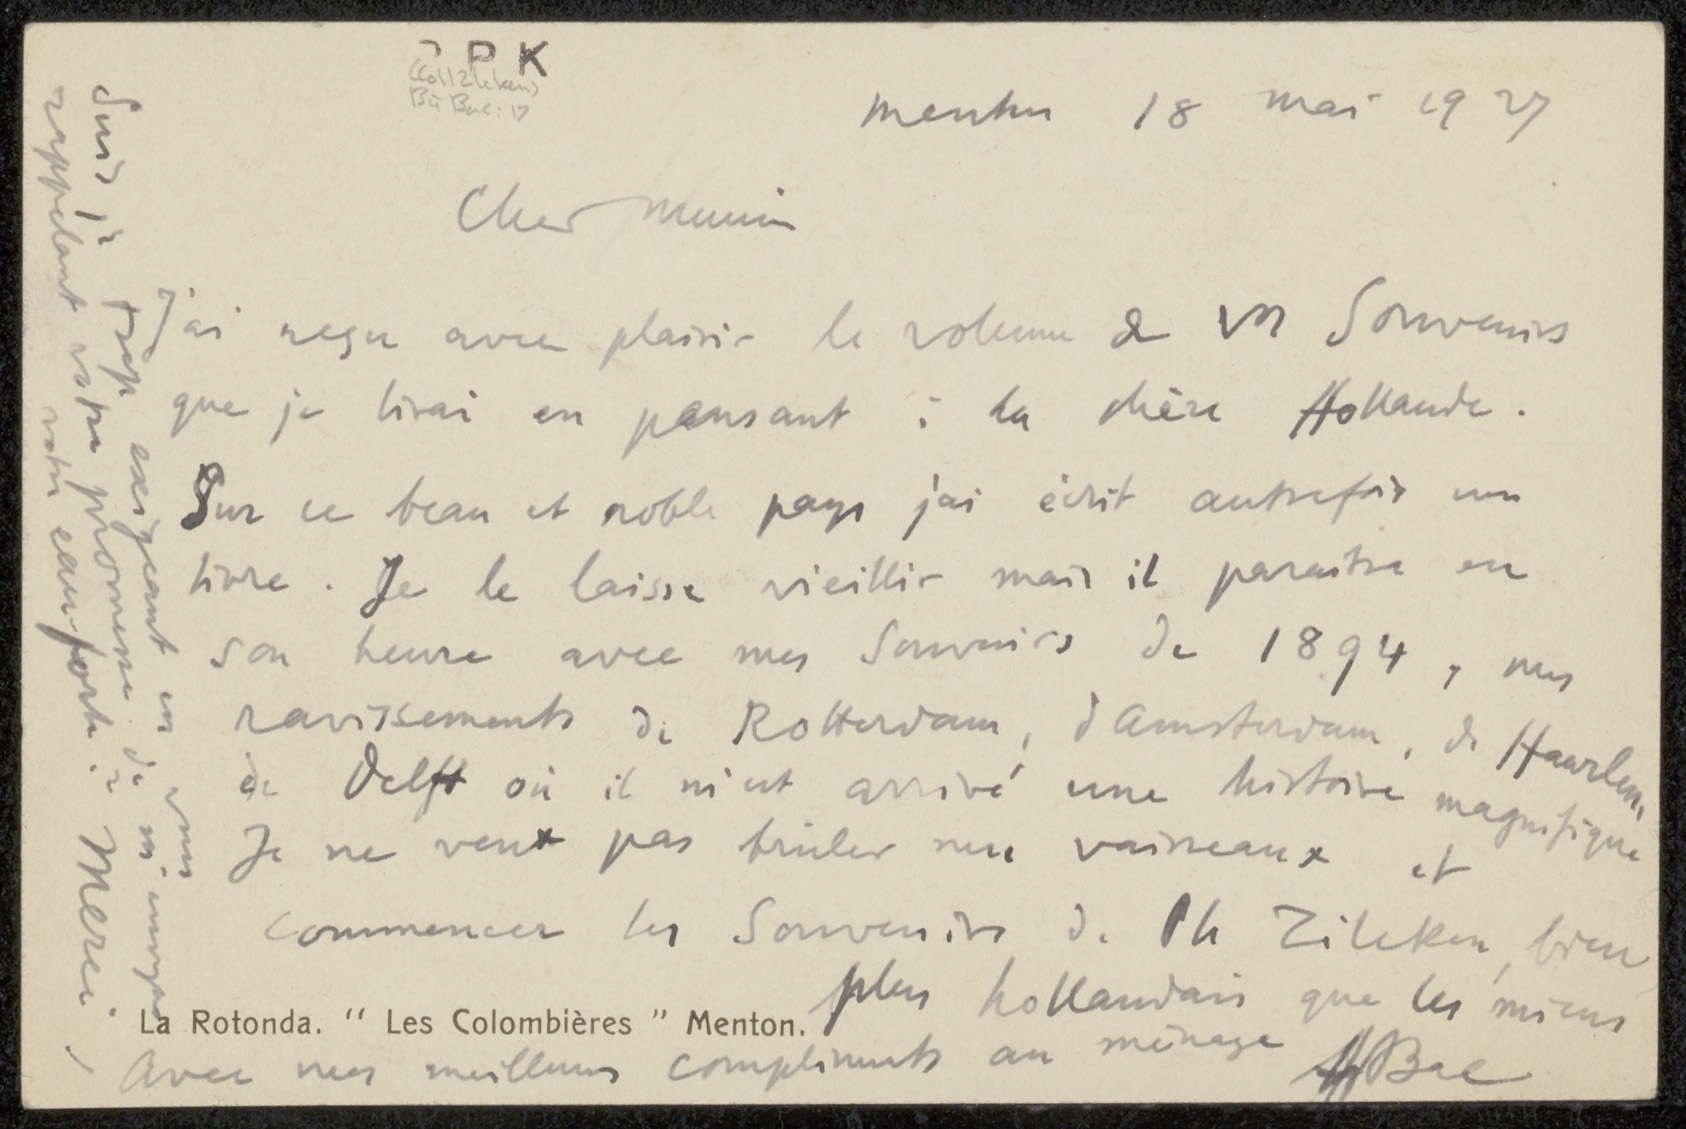 P K
Menton 18 mai 1927
Cher
J'ai reçu avec plaisir le volume de vos Souvenirs
que je lirai en pensant à la chère Hollande.
Sur ce beau et noble pays j'ai écrit autrefois un
livre. Je le laisse vieillir mais il paraitra en
son heure avec mes Souvenirs de 1894, mes
ravissements de Rotterdam, d'Amsterdam, de Haarlem,
de Delft où il m'est arrivé une histoire magnifique
Je ne veux pas bruler mes vaisseaux et
commencer les Souvenirs de Ph Zilcken, bien
plus hollandais que les miens
La Rotonda. “ Les Colombières ” Menton.
Avec mes meilleurs compliments au ménage
Bac
Suis-je trop exigeant en vous
rappelant votre promesse de m'envoyer
votre eau-forte ? Merci.